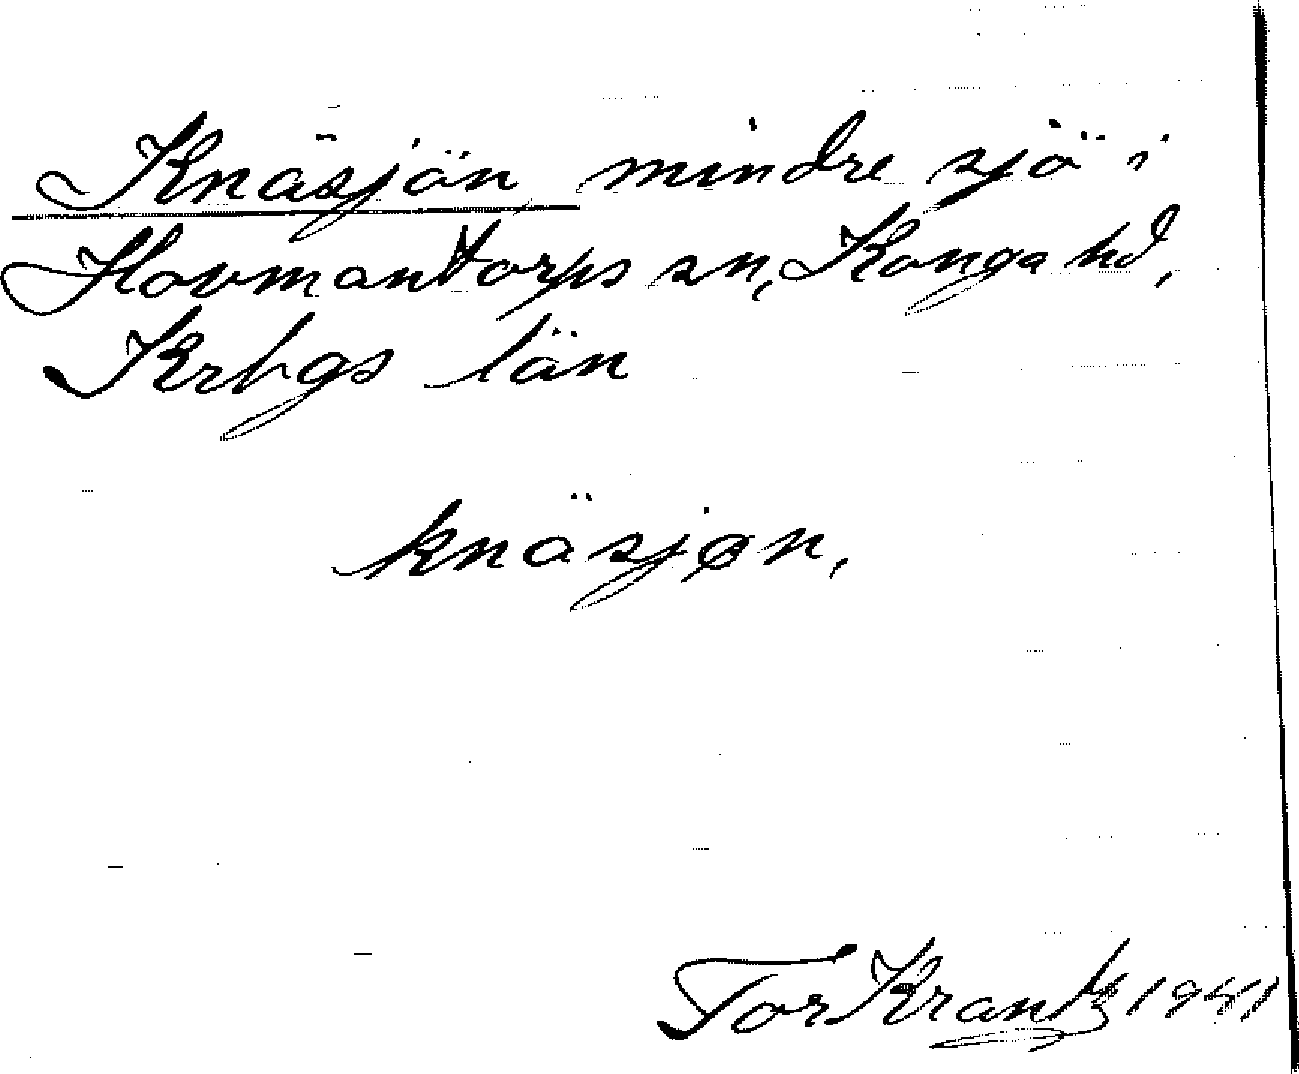 Knäsjön mindre sjö i
Hovmantorps sn, Konga hd,
Krbgs län
knäsjøn,
Tor Krantz 1941